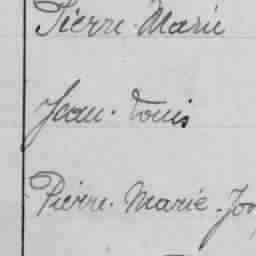 Pierre Marie
Jean. Louis
Pierre. Marie.